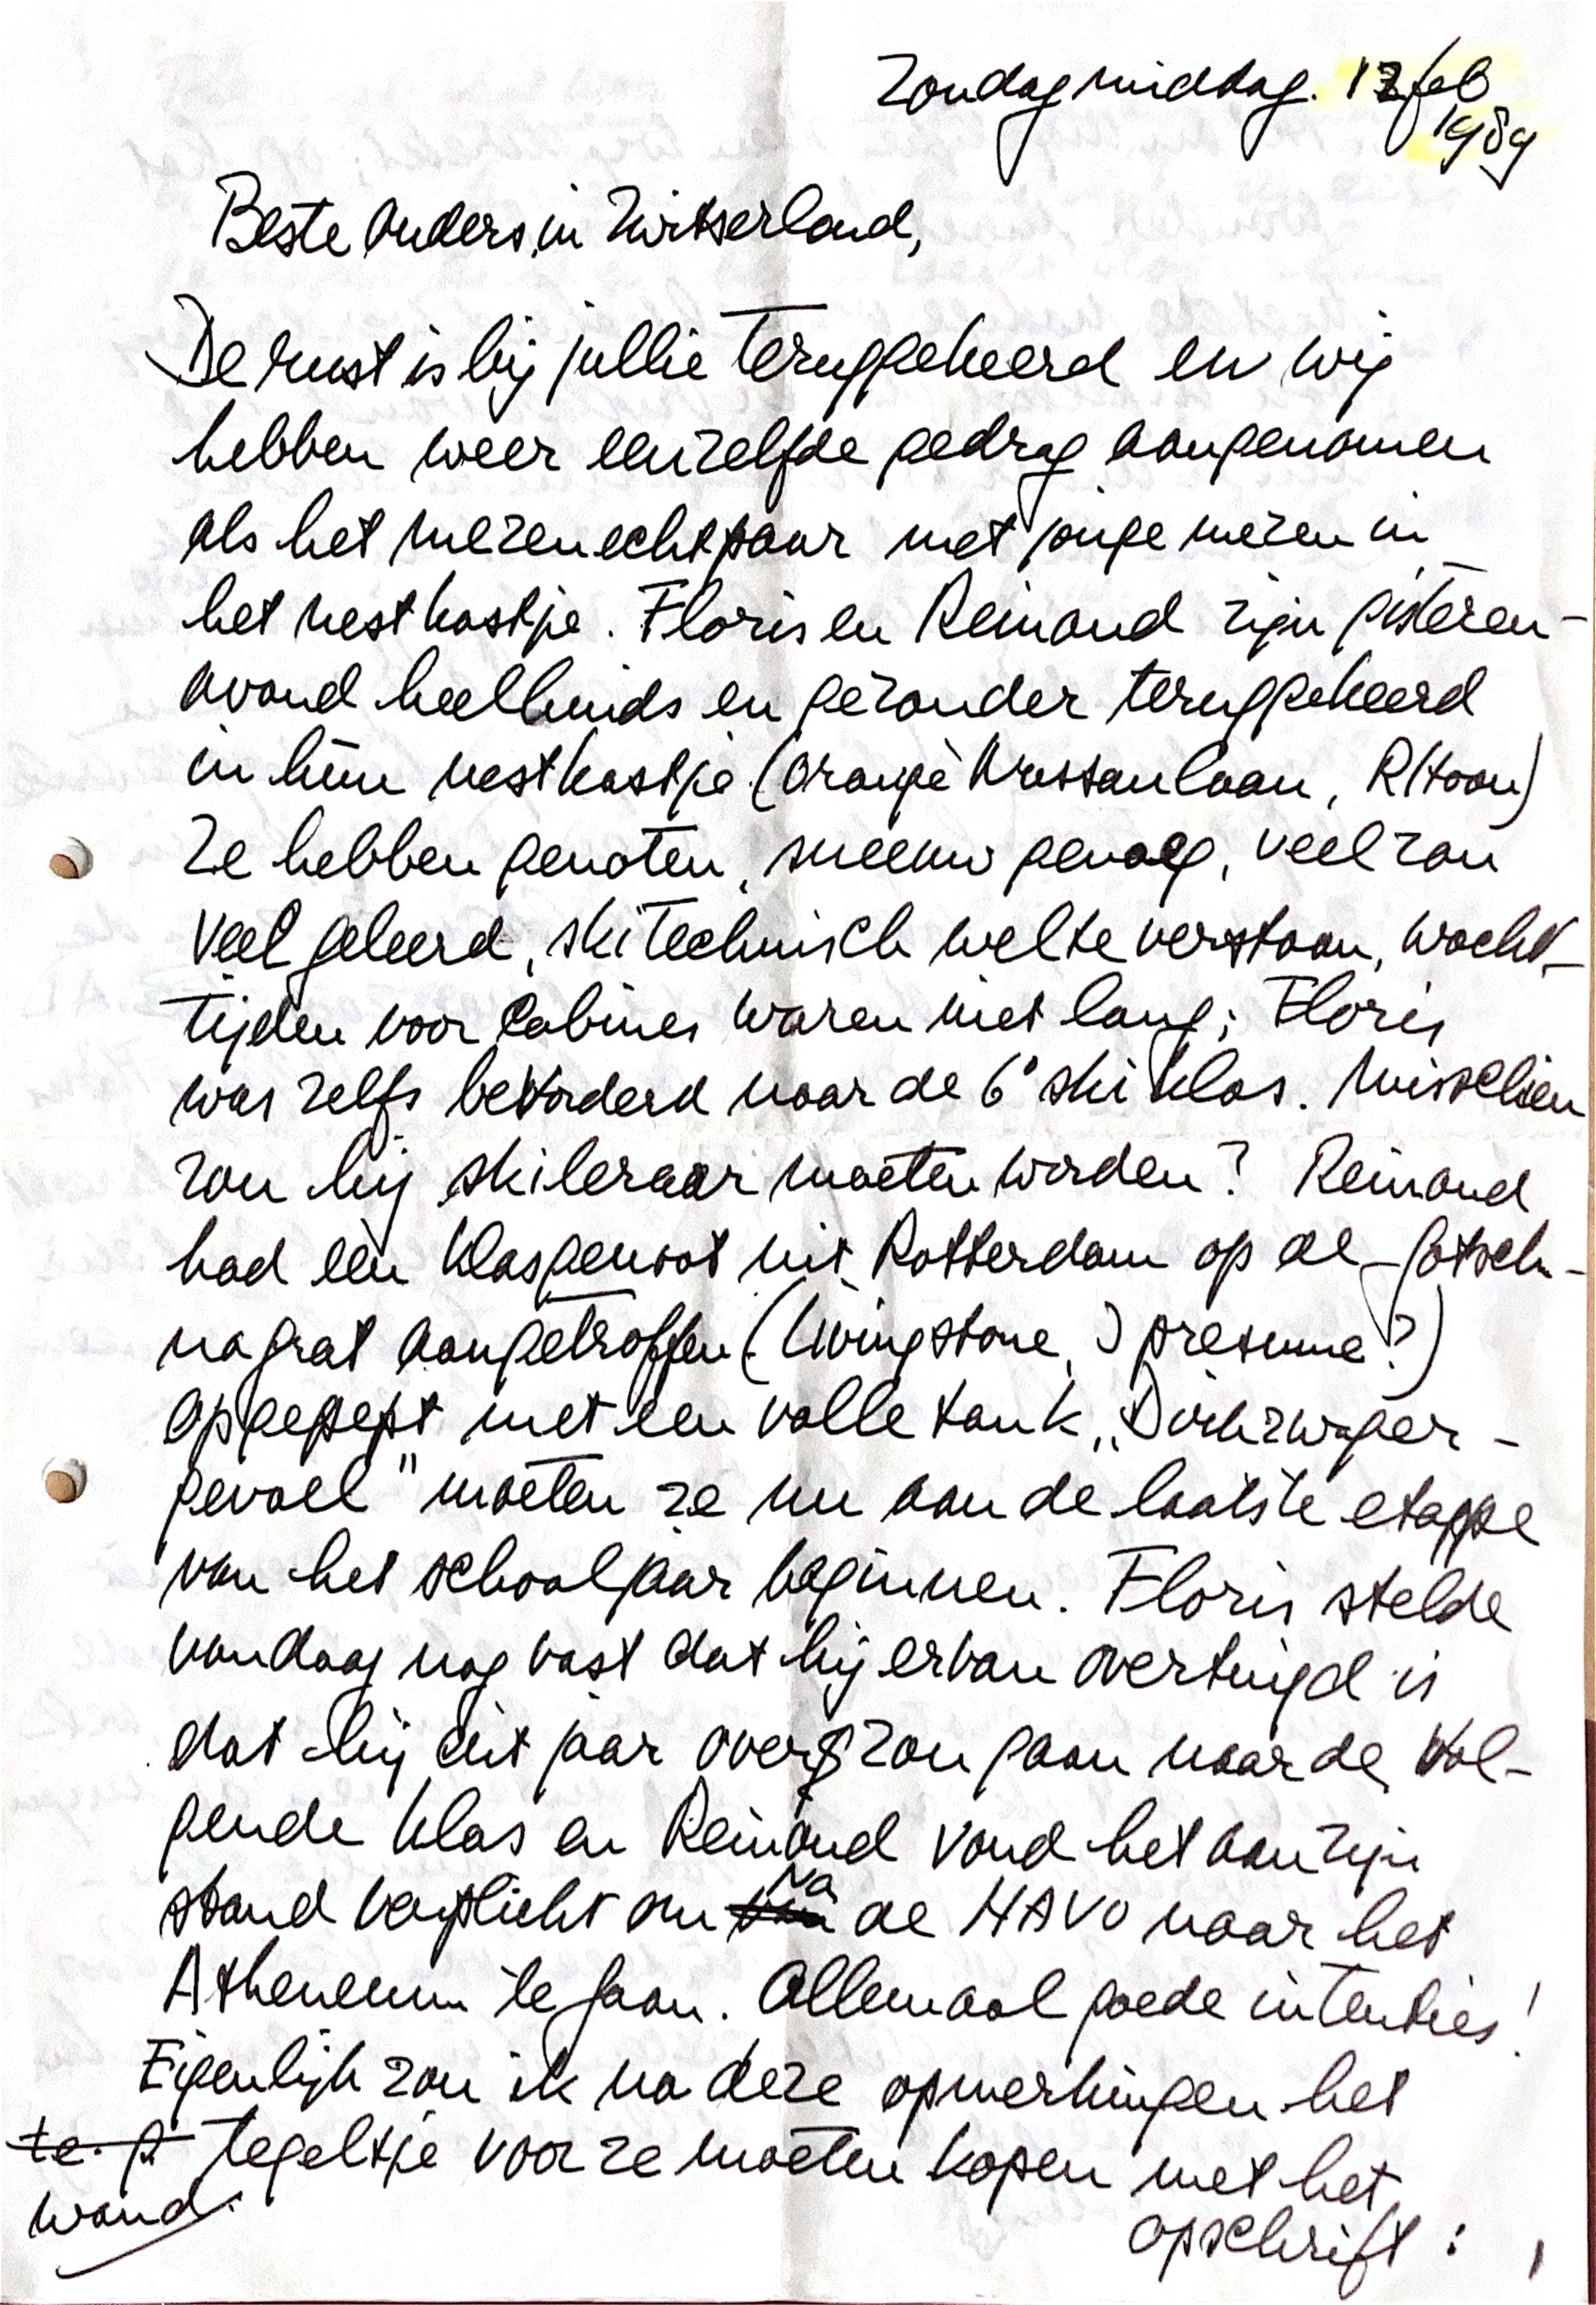 Zondagmiddag. 12 feb
1989
Beste Ouders, in Zwitserland,
De rust is bij jullie teruggekeerd en wij
hebben weer eenzelfde gedrag aangenomen
als het mezenechtpaar met jonge mezen in
het nestkastje. Floris en Reinoud zijn gisteren-
avond heelhuids en gezonder teruggekeerd
in hun nestkastje (Oranje Nassaulaan, R(toon)
Ze hebben genoten, sneeuw genoeg, veel zon
veel geleerd, skitechnisch welteverstaan, wacht-
tijden voor cabines waren niet lang; Floris
was zelfs bevorderd naar de 6e skiklas. Misschien
zou hij skileraar moeten worden? Reinoud
had één klasgenoot uit Rotterdam op de Gotsch-
nagrat aangetroffen (Livingstone, I presume?)
Opgepept met een volle tank „Dirkzwager-
gevoel" moeten ze nu aan de laatste etappe
van het schooljaar beginnen. Floris stelde
vandaag nog vast dat hij ervan overtuigd is
dat hij dit jaar over zou gaan naar de vol-
gende klas en Reinoud vond het aan zijn
stand verplicht om na de HAVO naar het
Atheneum te gaan. Allemaal goede intenties!
Eigenlijk zou ik na deze opmerkingen het
te. p. tegeltje voor ze moeten kopen met het
wand. opschrift :